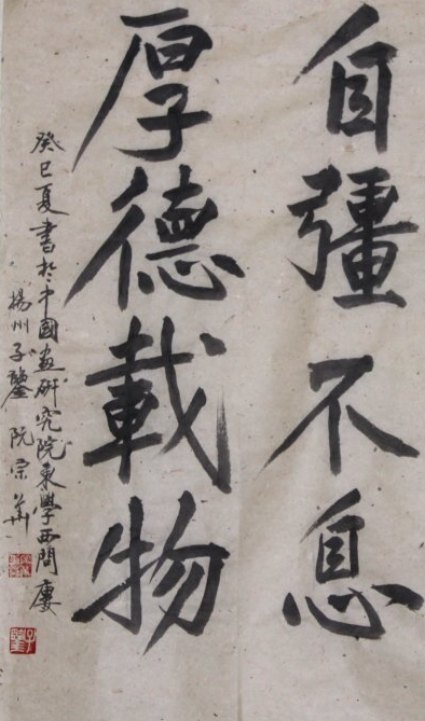 自彊不息
厚德載物
癸巳夏書於中國畫研究院東學西問廔
揚州子鑒阮宗華